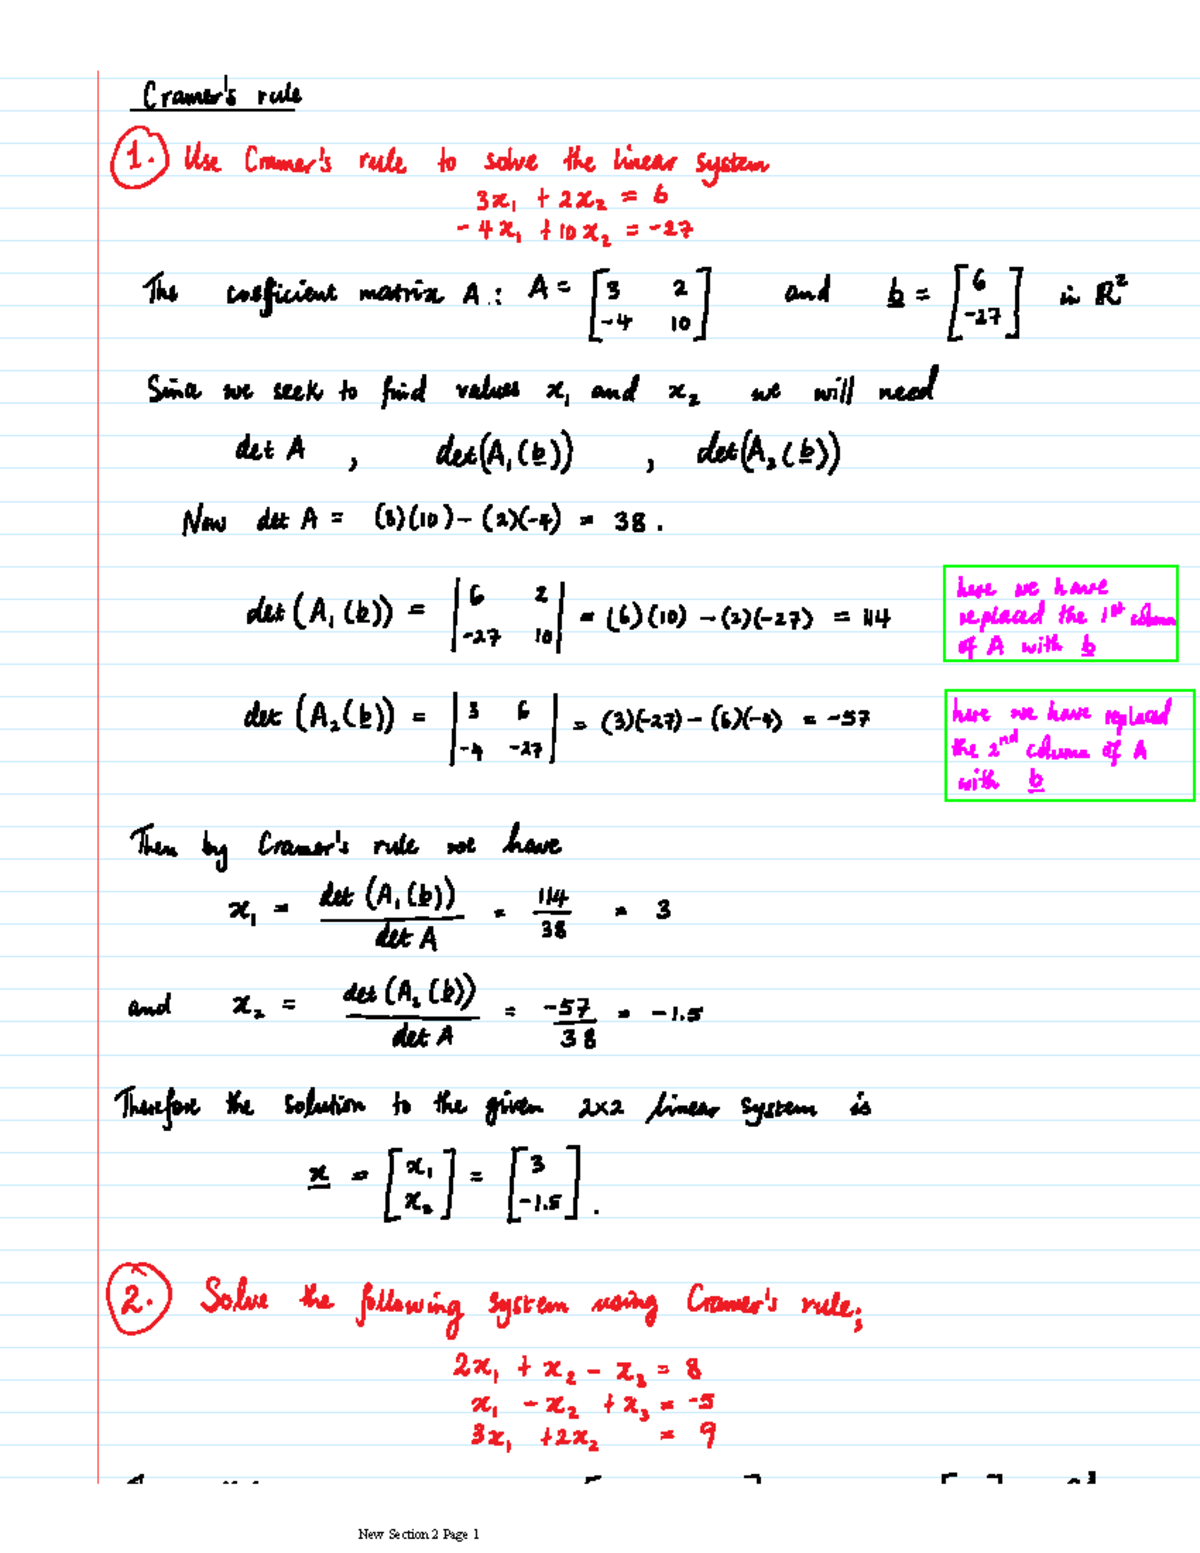 Cramer's rule
1. Use Cramer's rule to solve the linear system
3x₁ + 2x₂ = 6
-4x₁ + 10x₂ = -27
The coefficient matrix A : A = [3 2; -4 10] and b = [6; -27] in ℝ²
Since we seek to find values x₁ and x₂ we will need
det A , det(A₁(b)) , det(A₂(b))
Now det A = (3)(10) - (2)(-4) = 38.
det(A₁(b)) = |6 2; -27 10| = (6)(10) - (2)(-27) = 114
here we have
replaced the 1st column
of A with b
det(A₂(b)) = |3 6; -4 -27| = (3)(-27) - (6)(-4) = -57
here we have replaced
the 2nd column of A
with b
Then by Cramer's rule we have
x₁ = det(A₁(b)) / det A = 114/38 = 3
and x₂ = det(A₂(b)) / det A = -57/38 = -1.5
Therefore the solution to the given 2x2 linear system is
x = [x₁; x₂] = [3; -1.5].
2. Solve the following system using Cramer's rule;
2x₁ + x₂ - x₃ = 8
x₁ - x₂ + x₃ = -5
3x₁ + 2x₂ = 9
New Section 2 Page 1